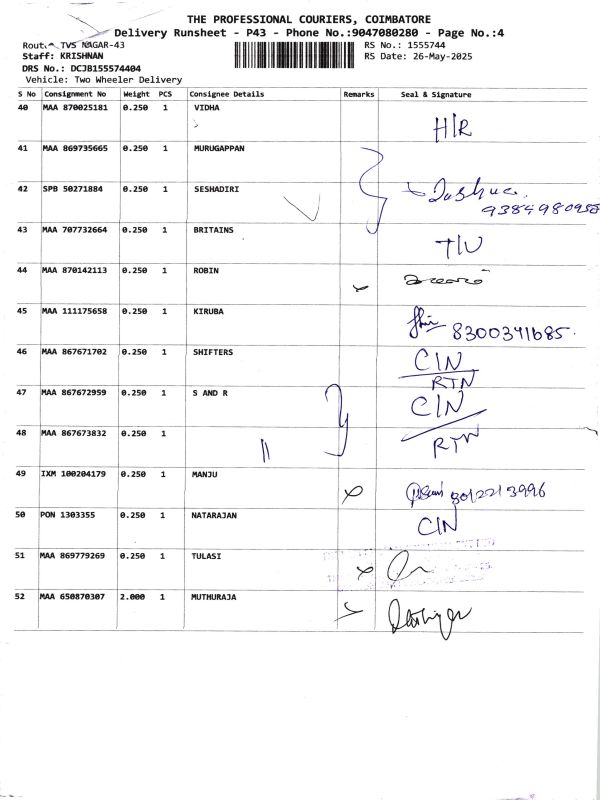 THE PROFESSIONAL COURIERS, COIMBATORE
Delivery Runsheet - P43 - Phone No.:9047080280 - Page No.:4
Route: TVS NAGAR-43 RS No.: 1555744
Staff: KRISHNAN RS Date: 26-May-2025
DRS No.: DCJB155574404
Vehicle: Two Wheeler Delivery
S No Consignment No Weight PCS Consignee Details Remarks Seal & Signature
40 MAA 870025181 0.250 1 VIDHA
H/R
41 MAA 869735665 0.250 1 MURUGAPPAN
42 SPB 50271884 0.250 1 SESHADIRI
9384980958
43 MAA 707732664 0.250 1 BRITAINS
44 MAA 870142113 0.250 1 ROBIN
45 MAA 111175658 0.250 1 KIRUBA
8300341685
46 MAA 867671702 0.250 1 SHIFTERS C/N
RTN
47 MAA 867672959 0.250 1 S AND R C/N
48 MAA 867673832 0.250 1
RTN
49 IXM 100204179 0.250 1 MANJU
50 PON 1303355 0.250 1 NATARAJAN C/N
51 MAA 869779269 0.250 1 TULASI
52 MAA 650870307 2.000 1 MUTHURAJA